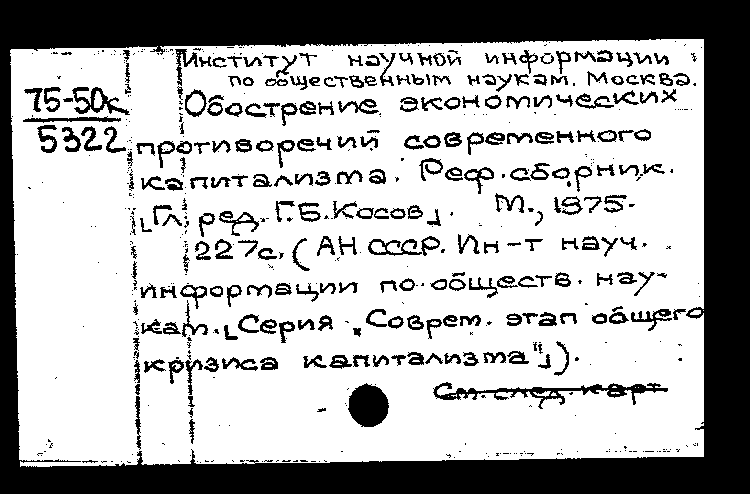 Институт научной информации
по общественным наукам. Москва.
75-50к
5322
Обострение экономических
противоречий современного
капитализма. Реф.сборник.
[Гл. ред. Г.Б.Косов]. М., 1975.
227с. (АН СССР. Ин-т науч.
информации по обществ. нау-
кам. [Серия "Соврем. этап общего
кризиса капитализма"]).
См. след. карт